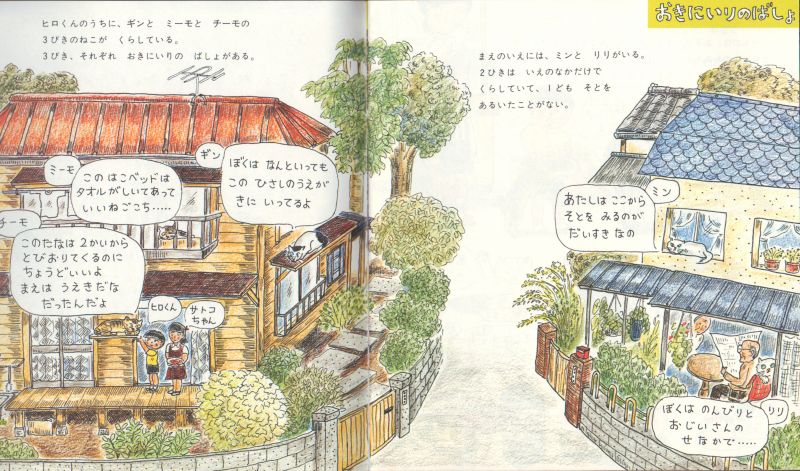 おきにいりのばしょ
ヒロくんのうちに、ギンと ミーモと チーモの
3びきのねこが くらしている。
3びき、それぞれ おきにいりの ばしょがある。
まえのいえには、ミンと リリがいる。
2ひきは いえのなかだけで
くらしていて、1ども そとを
あるいたことがない。
ギン
ぼくは なんといっても
この ひさしのうえが
きに いってるよ
ミーモ
この はこベッドは
タオルがしいてあって
いいねごこち……
チーモ
このたなは 2かいから
とびおりてくるのに
ちょうどいいよ
まえは うえきだな
だったんだよ
ヒロくん
サトコ
ちゃん
ミン
あたしは ここから
そとを みるのが
だいすき なの
リリ
ぼくは のんびりと
おじいさんの
せなかで……